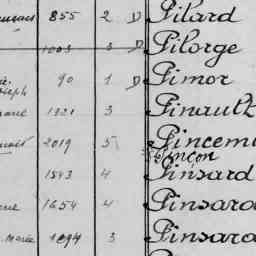 855 2 D Pilard
1003 3 D Pilorge
90 1 D Pimor
1321 3 Pinault
2019 5 Pincem
Pinçon
1843 4 Pinsard
1654 4 Pinsard
1894 3 Pinsard